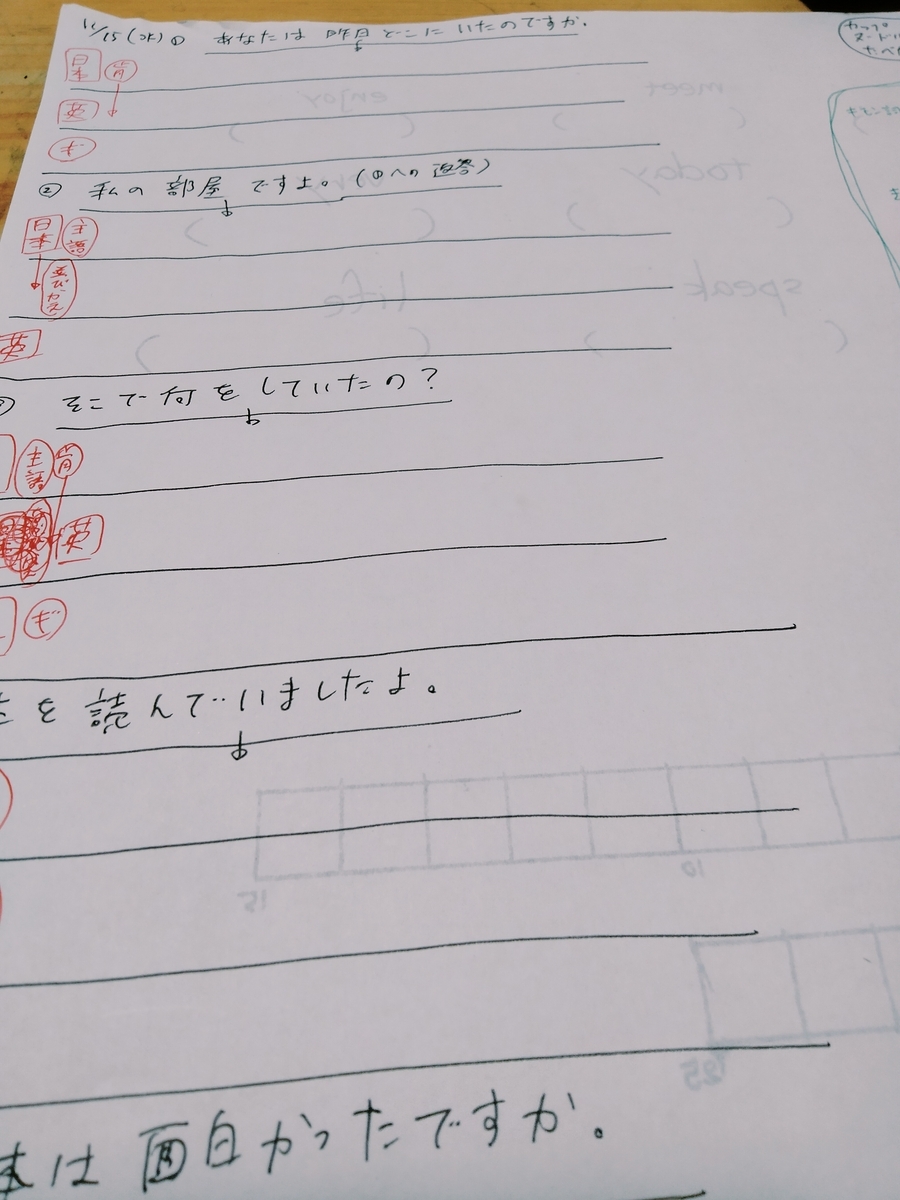 11/15(水)① あなたは 昨日 どこに いたのですか.
日本 肯
英
ぎ
② 私の 部屋 ですよ。(①への 返答)
日本 主語
並びかえ
英
そこで 何を していたの?
主語 肯
英
ぎ
を 読んでいましたよ。
本は 面白かったですか。
カップ
ヌードル
meet
enjoy
today
speak
life
15
10
25